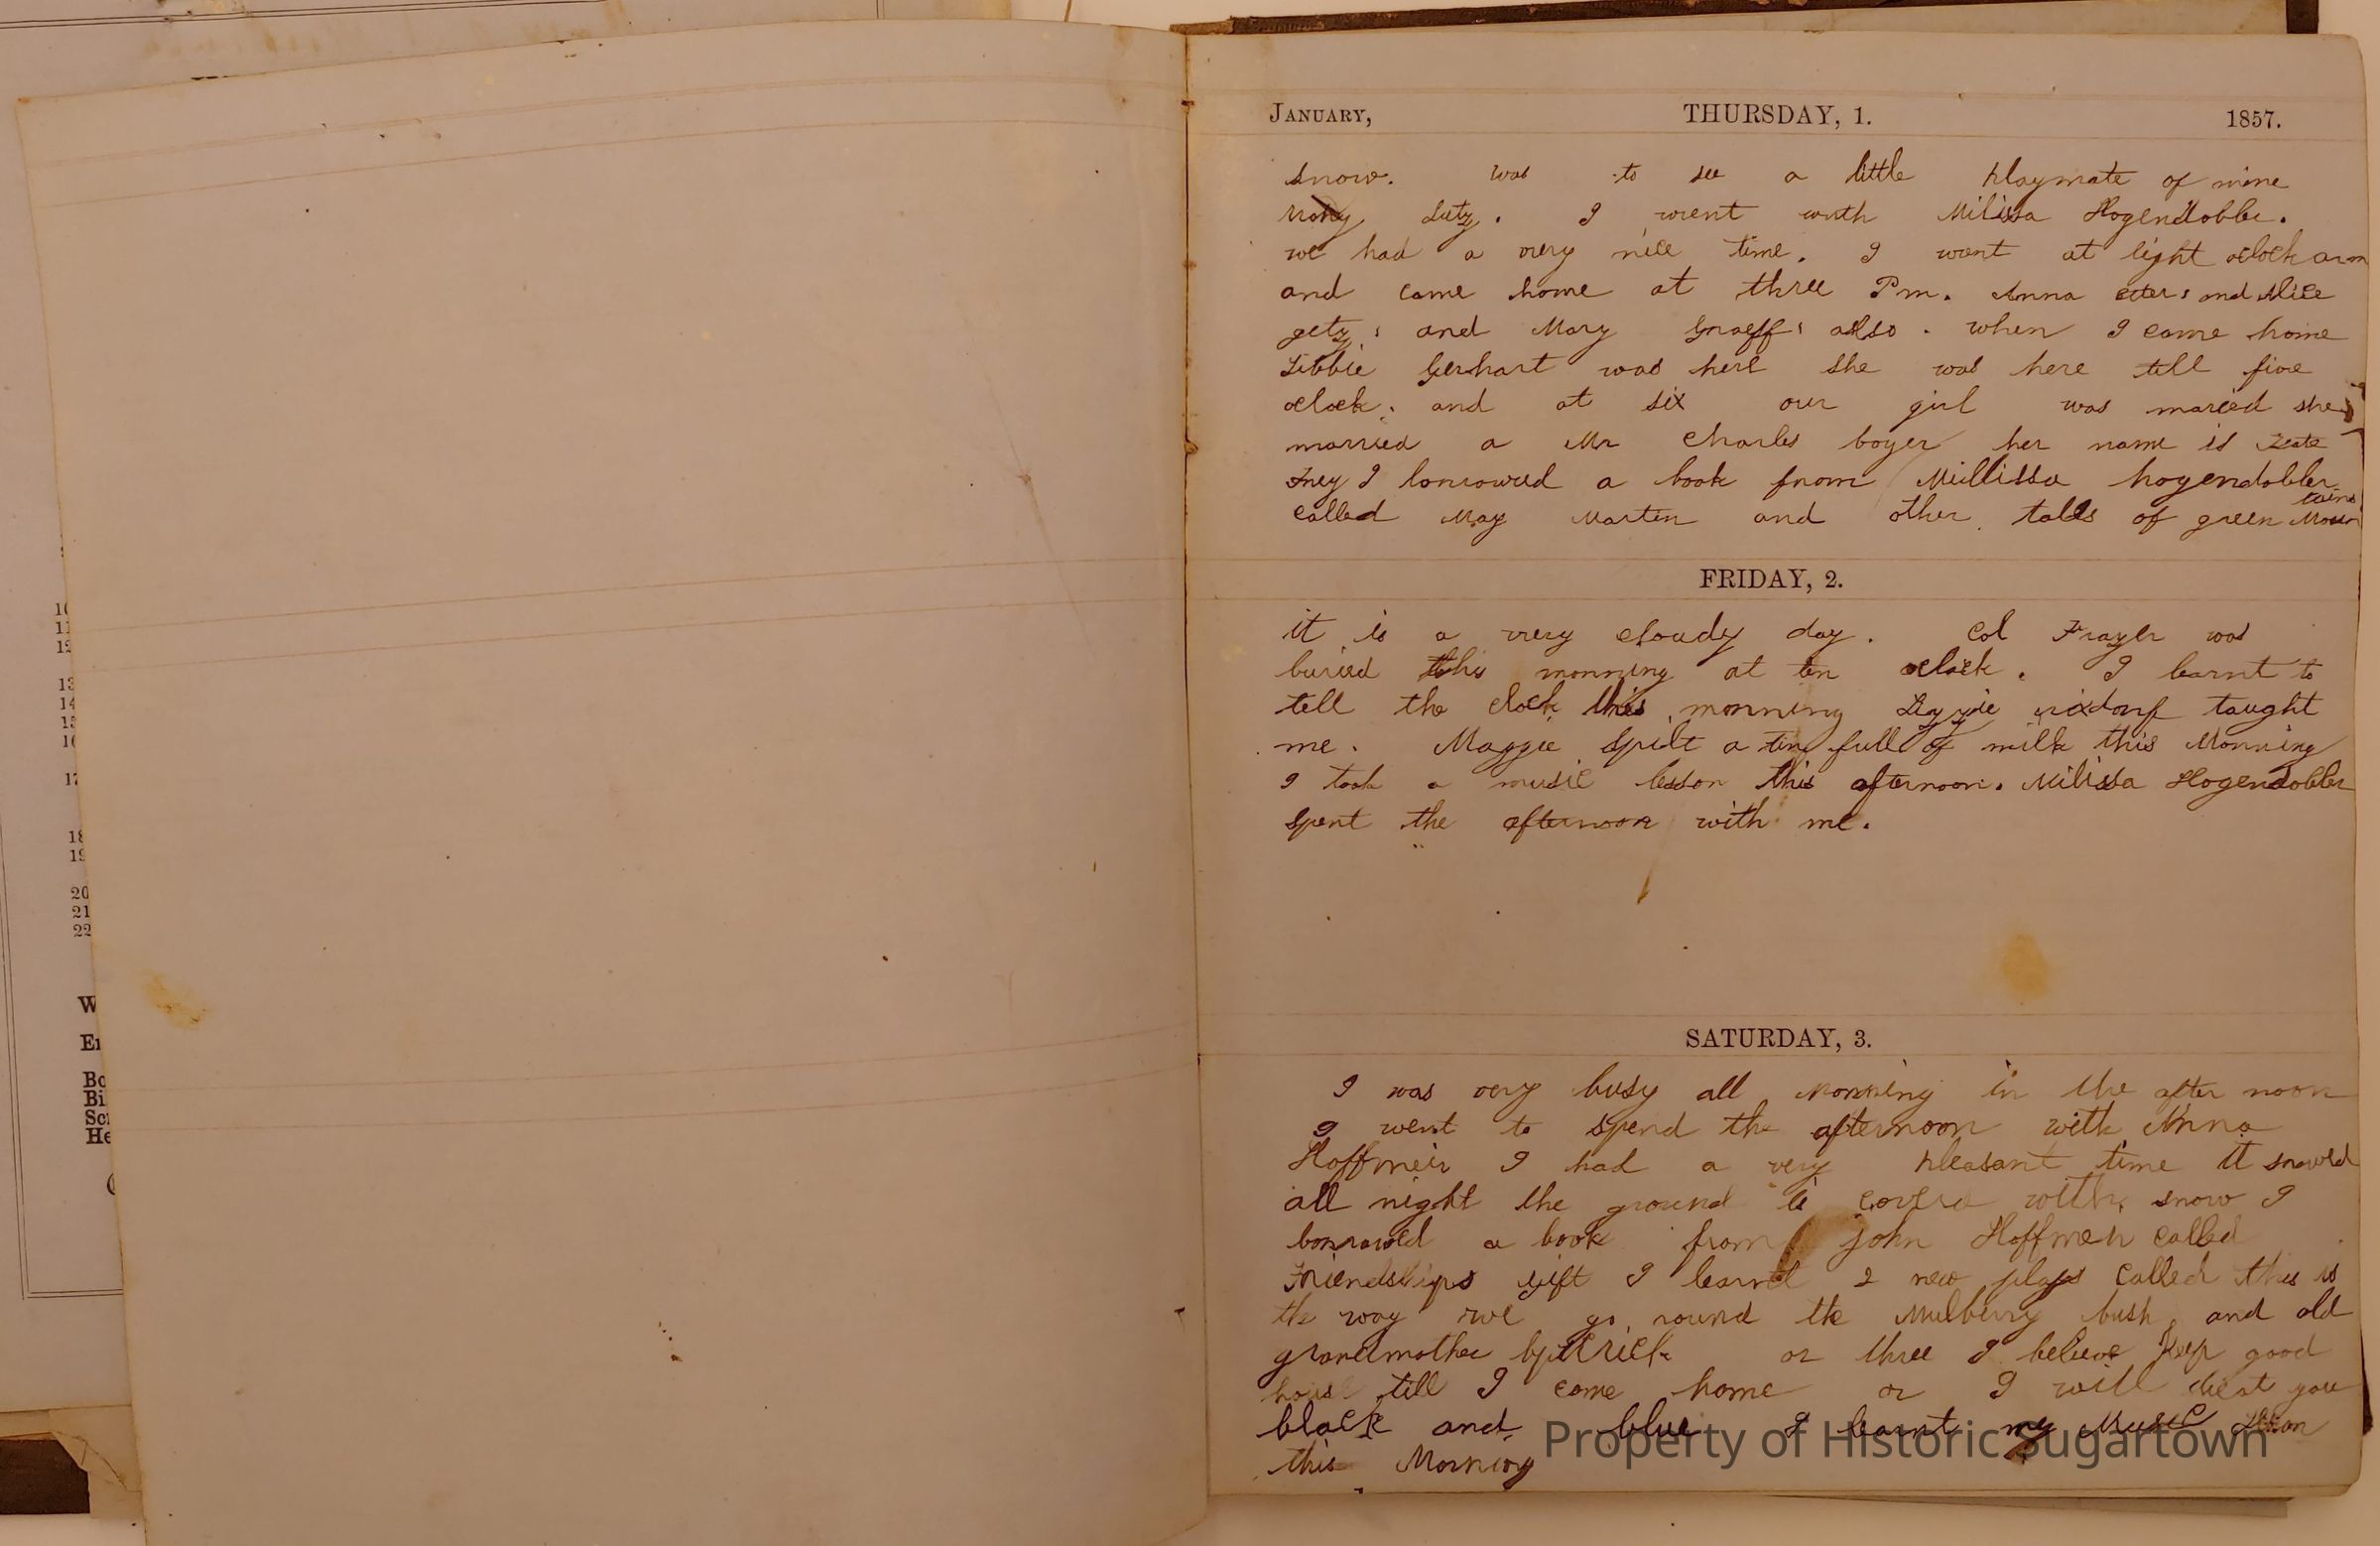 10
11
12
13
14
15
16
17
18
19
20
21
22
W
Bo
Bi
Sc
He
JANUARY, THURSDAY, 1. 1857.
snow. was to see a little playmate of mine
Lutz. I went with Milissa Hogendobler.
we had a very nice time. I went at eight oclock am
and came home at three Pm. Anna etter and Alice
getz, and Mary Graeff, also. when I came home
Libbie Gerhart was here she was here till five
oclock. and at six our girl was maried she
married a Mr Charles boyer her name is Kate
Frey I borrowed a book from Millissa hogendobler
called May Marten and other tales of green Moun
tains
FRIDAY, 2.
it is a very cloudy day. Col Frayer was
buried this morning at ten oclock. I learnt to
tell the clock this morning Lizzie rixdorf taught
me. Maggie spilt a tin full of milk this Morning
I took a music lesson this afternoon. Milissa Hogendobler
spent the afternoon with me.
SATURDAY, 3.
I was very busy all Morning in the after noon
I went to spend the afternoon with Anna
Hoffmeir I had a very pleasant time it snowed
all night the ground is coverd with snow I
borrowed a book from john Hoffmeir called
Friendships gift I learnt 2 new plays called this is
the way we go round the Mulberry bush and old
grandmother or three I believe Keep good
house till I come home or I will beat you
black and blue I learnt my Music lesson
this Morning
Property of Historic Sugartown